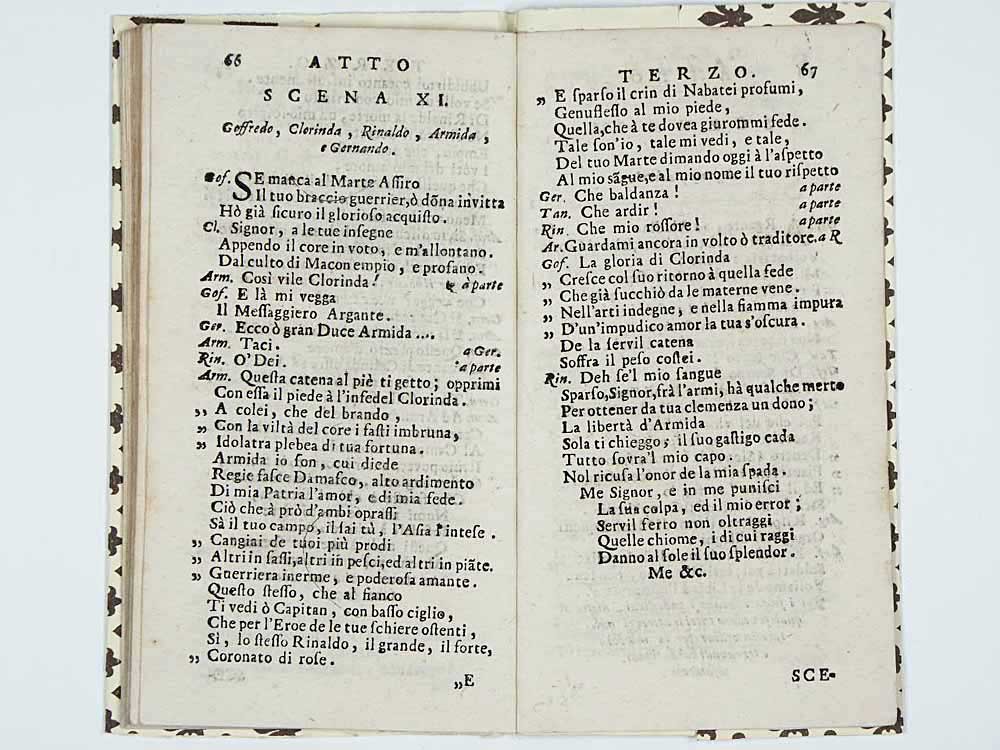 66 ATTO
SCENA XI.
Goffredo, Clorinda, Rinaldo, Armida,
e Gernando.
Gof. SE manca al Marte Assiro
Il tuo braccio guerrier, ò dõna invitta
Hò già sicuro il glorioso acquisto.
Cl. Signor, a le tue insegne
Appendo il core in voto, e m'allontano.
Dal culto di Macon empio, e profano.
Arm. Così vile Clorinda! à parte
Gof. E là mi vegga
Il Messaggiero Argante.
Ger. Ecco ò gran Duce Armida ....
Arm. Taci. a Ger.
Rin. O' Dei. a parte
Arm. Questa catena al piè ti getto; opprimi
Con essa il piede à l'infedel Clorinda.
„ A colei, che del brando,
„ Con la viltà del core i fasti imbruna,
„ Idolatra plebea di tua fortuna.
Armida io son, cui diede
Regie fasce Damasco, alto ardimento
Di mia Patria l'amor, e di mia fede.
Ciò che à prò d'ambi oprassi
Sà il tuo campo, il sai tù, l'Asia l'intese.
„ Cangiai de tuoi più prodi
„ Altri in sassi, altri in pesci, ed altri in piãte.
„ Guerriera inerme, e poderosa amante.
Questo stesso, che al fianco
Ti vedi ò Capitan, con basso ciglio,
Che per l'Eroe de le tue schiere ostenti,
Sì, lo stesso Rinaldo, il grande, il forte,
„ Coronato di rose.
„E
TERZO. 67
„ E sparso il crin di Nabatei profumi,
Genuflesso al mio piede,
Quella, che à te dovea giurommi fede.
Tale son'io, tale mi vedi, e tale,
Del tuo Marte dimando oggi à l'aspetto
Al mio sãgue, e al mio nome il tuo rispetto
Ger. Che baldanza! a parte
Tan. Che ardir! a parte
Rin. Che mio rossore! a parte
Ar. Guardami ancora in volto ò traditore. a R
Gof. La gloria di Clorinda
„ Cresce col suo ritorno à quella fede
„ Che già succhiò da le materne vene.
„ Nell'arti indegne, e nella fiamma impura
„ D'un'impudico amor la tua s'oscura.
De la servil catena
Soffra il peso costei.
Rin. Deh se'l mio sangue
Sparso, Signor, frà l'armi, hà qualche merto
Per ottener da tua clemenza un dono;
La libertà d'Armida
Sola ti chieggo; il suo gastigo cada
Tutto sovra'l mio capo.
Nol ricusa l'onor de la mia spada.
Me Signor, e in me punisci
La sua colpa, ed il mio error;
Servil ferro non oltraggi
Quelle chiome, i di cui raggi
Danno al sole il suo splendor.
Me &c.
SCE-